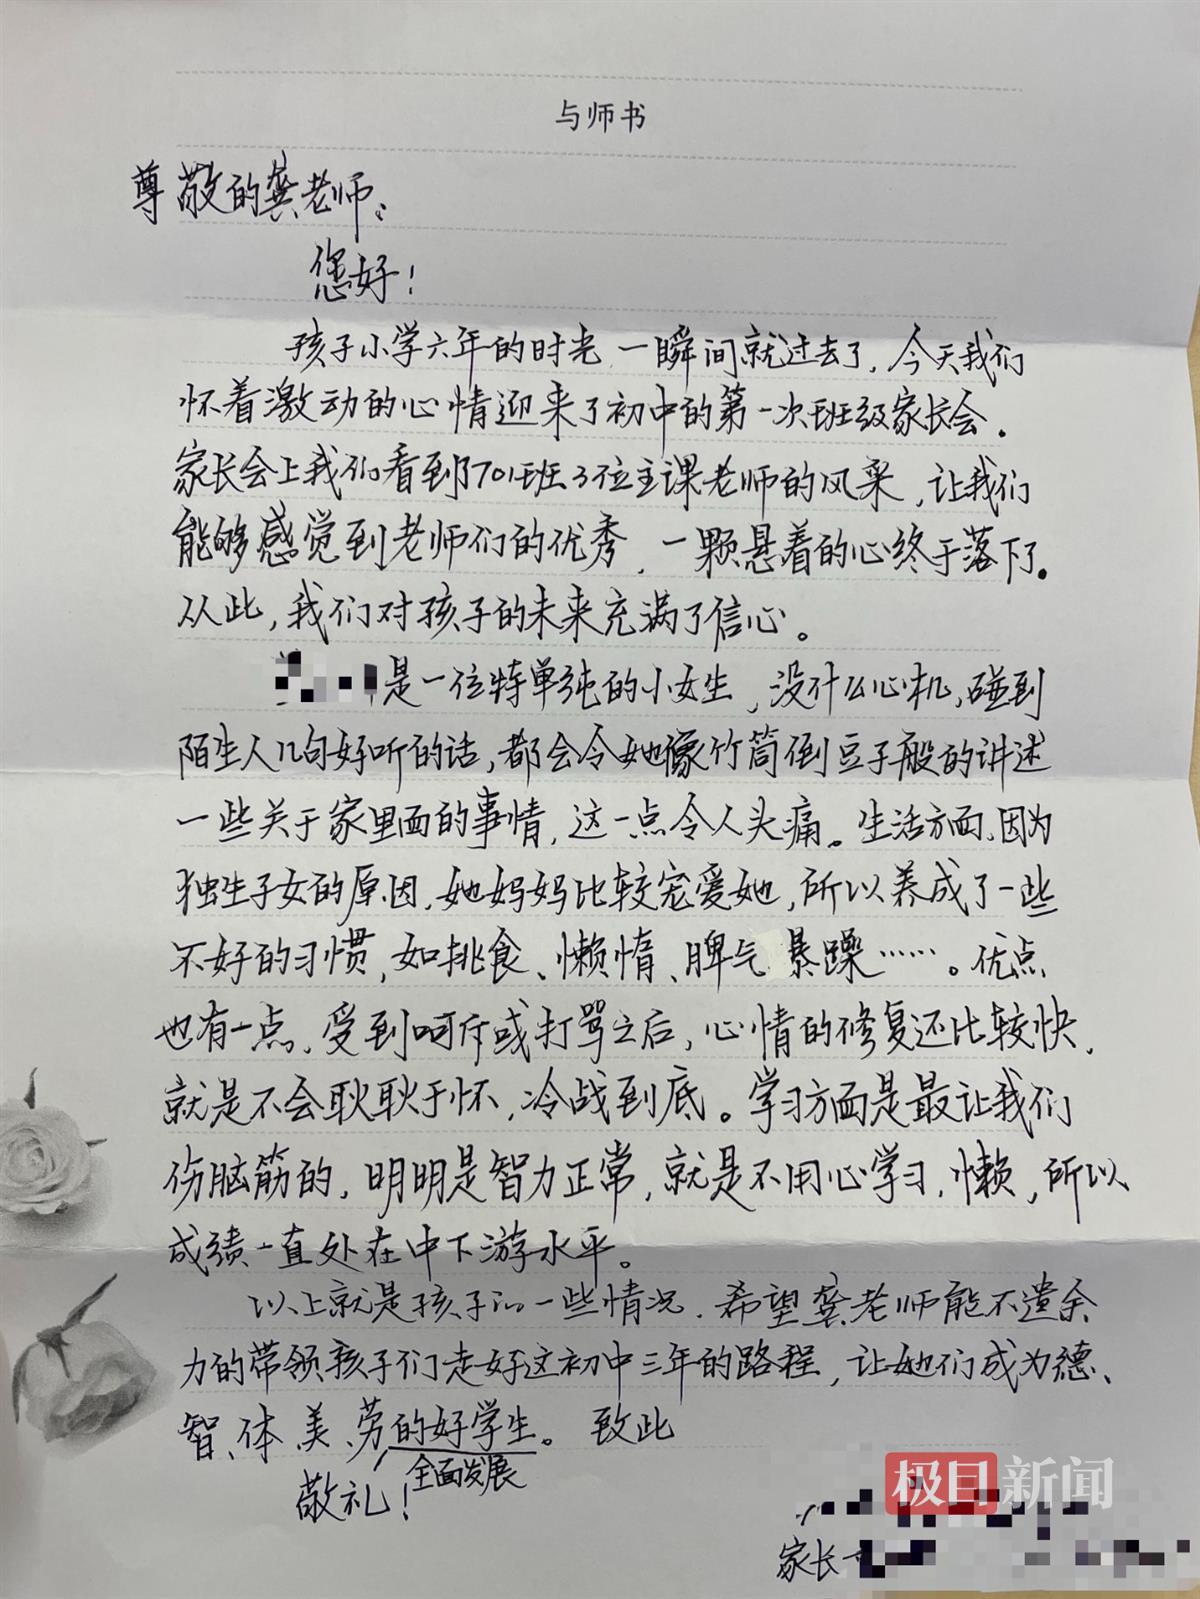 与师书
尊敬的龚老师：
您好！
孩子小学六年的时光，一瞬间就过去了，今天我们
怀着激动的心情迎来了初中的第一次班级家长会。
家长会上我们看到701班3位主课老师的风采，让我们
能够感觉到老师们的优秀，一颗悬着的心终于落下了。
从此，我们对孩子的未来充满了信心。
是一位特单纯的小女生，没什么心机，碰到
陌生人几句好听的话，都会令她像竹筒倒豆子般的讲述
一些关于家里面的事情，这一点令人头痛。生活方面，因为
独生子女的原因，她妈妈比较宠爱她，所以养成了一些
不好的习惯，如挑食、懒惰、脾气暴躁……。优点
也有一点，受到呵斥或打骂之后，心情的修复还比较快，
就是不会耿耿于怀，冷战到底。学习方面是最让我们
伤脑筋的，明明是智力正常，就是不用心学习，懒，所以
成绩一直处在中下游水平。
以上就是孩子的一些情况，希望龚老师能不遗余
力的带领孩子们走好这初中三年的路程，让她们成为德、
智、体、美、劳的好学生。致此
全面发展
敬礼！
极目新闻
家长